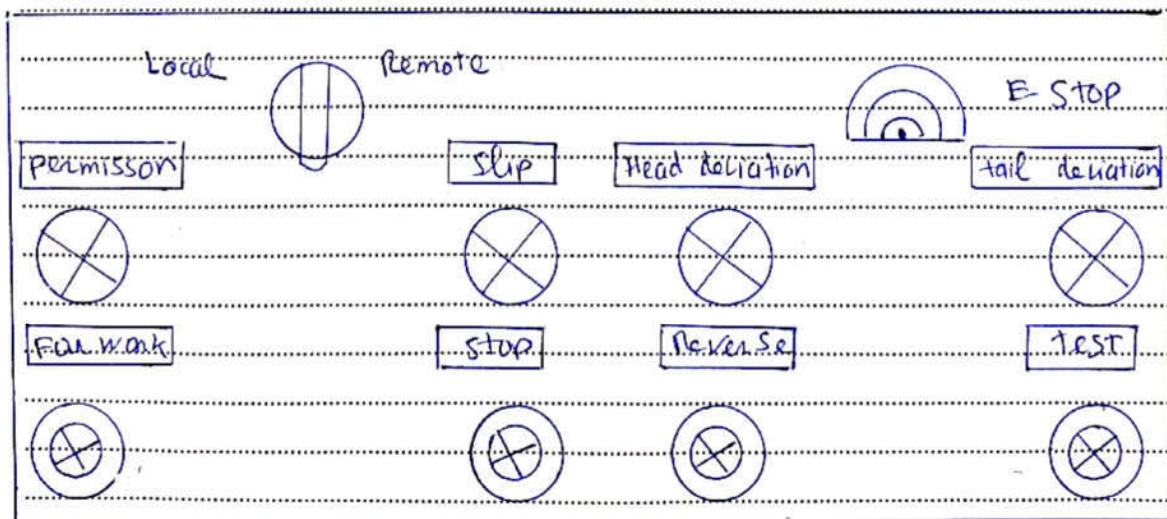 Local Remote E-STOP
permisson slip Head deviation tail deviation
Forwork stop Reverse test